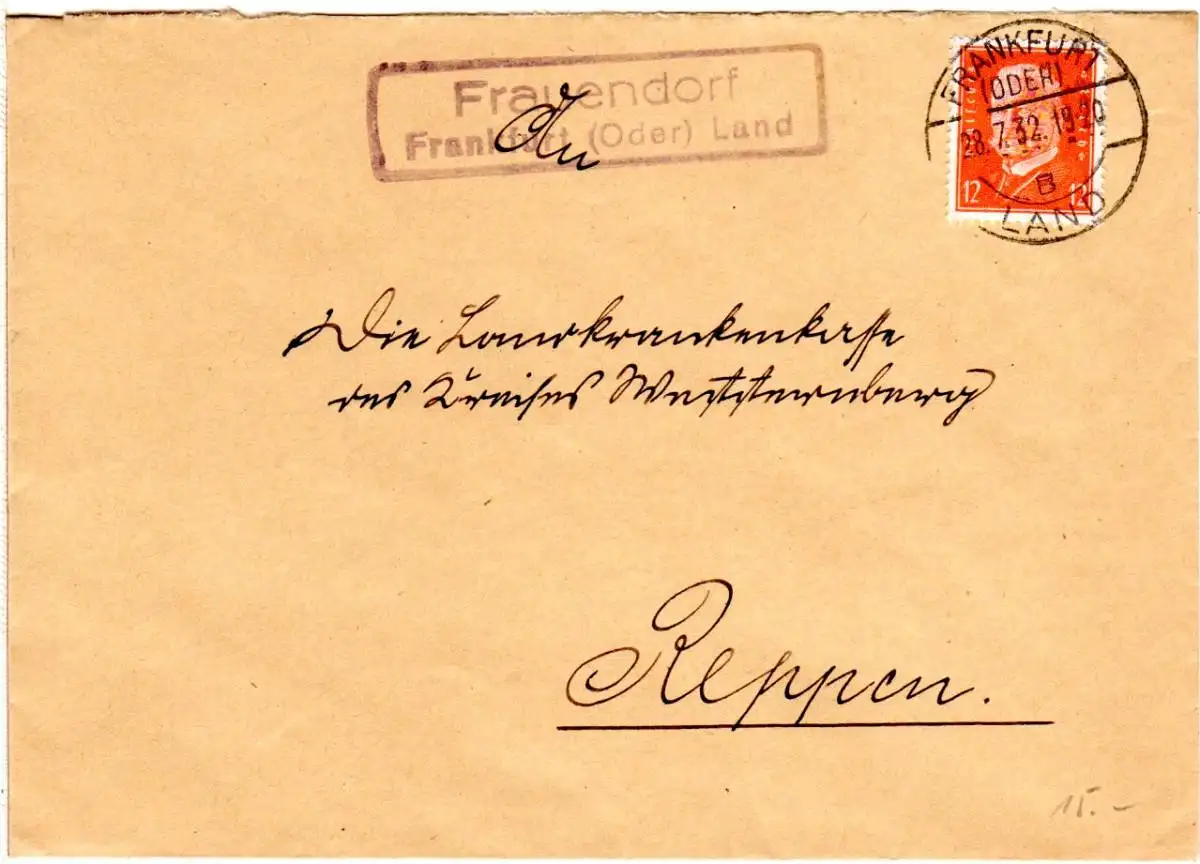 Frauendorf
Frankfurt (Oder) Land
An
FRANKFURT
(ODER)
28.7.32.19-20
B
LAND
12 12
Die Landkrankenkasse
des Kreises Weststernberg
Reppen.
15.-